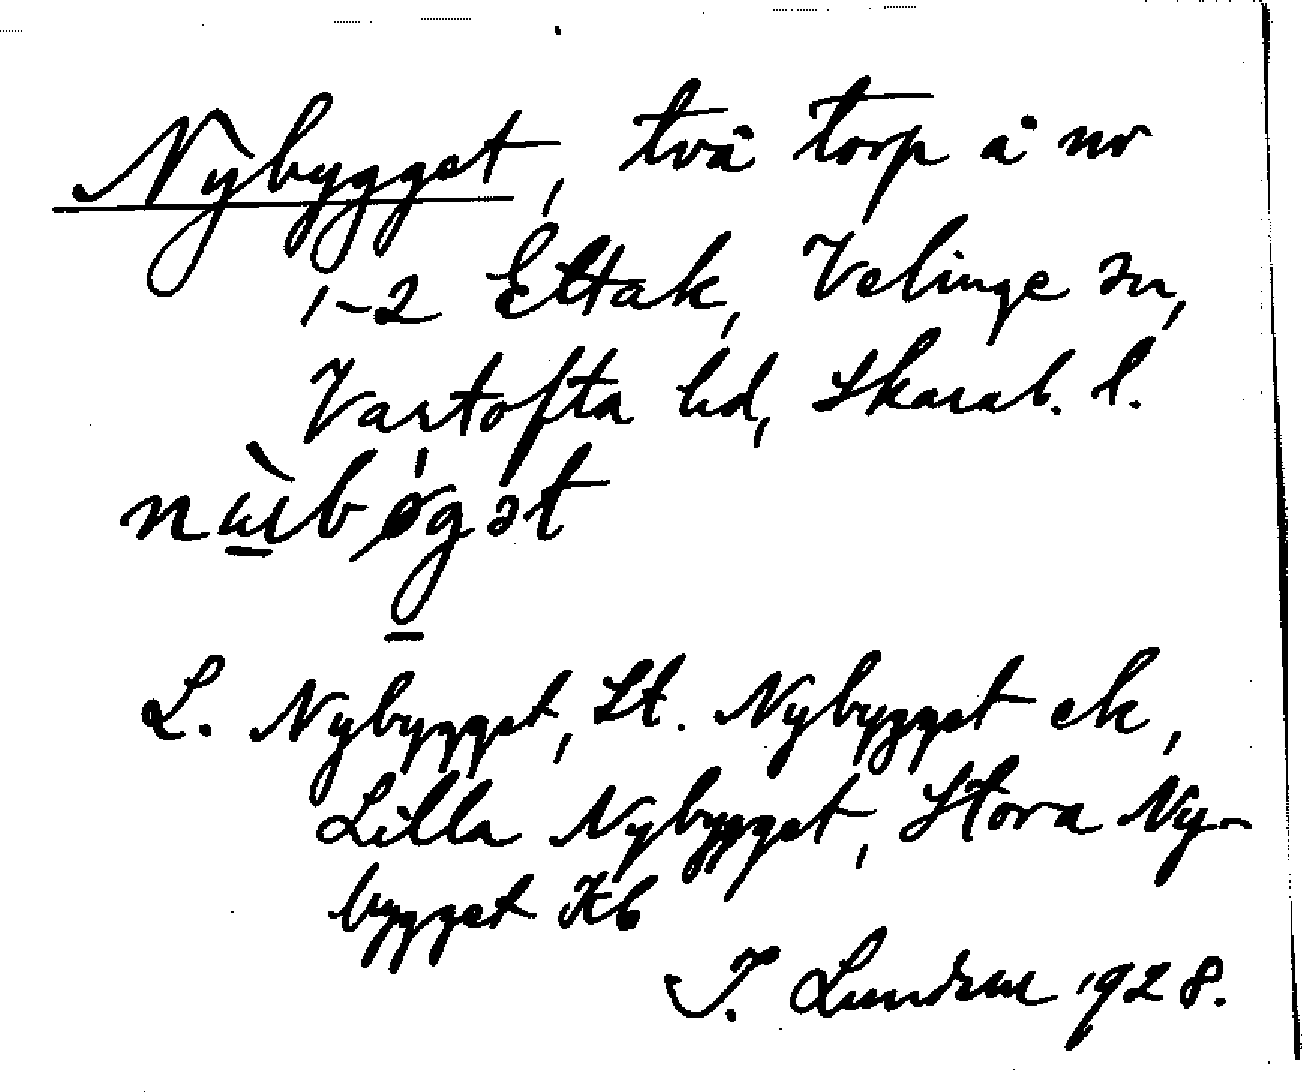 Nybygget, två torp å nr
1-2 Ettak, Velinge sn,
Vartofta hd, Skarab. l.
L. Nybygget, St. Nybygget ek,
Lilla Nybygget, Stora Ny-
bygget Kb
J. Lundzen 1928.